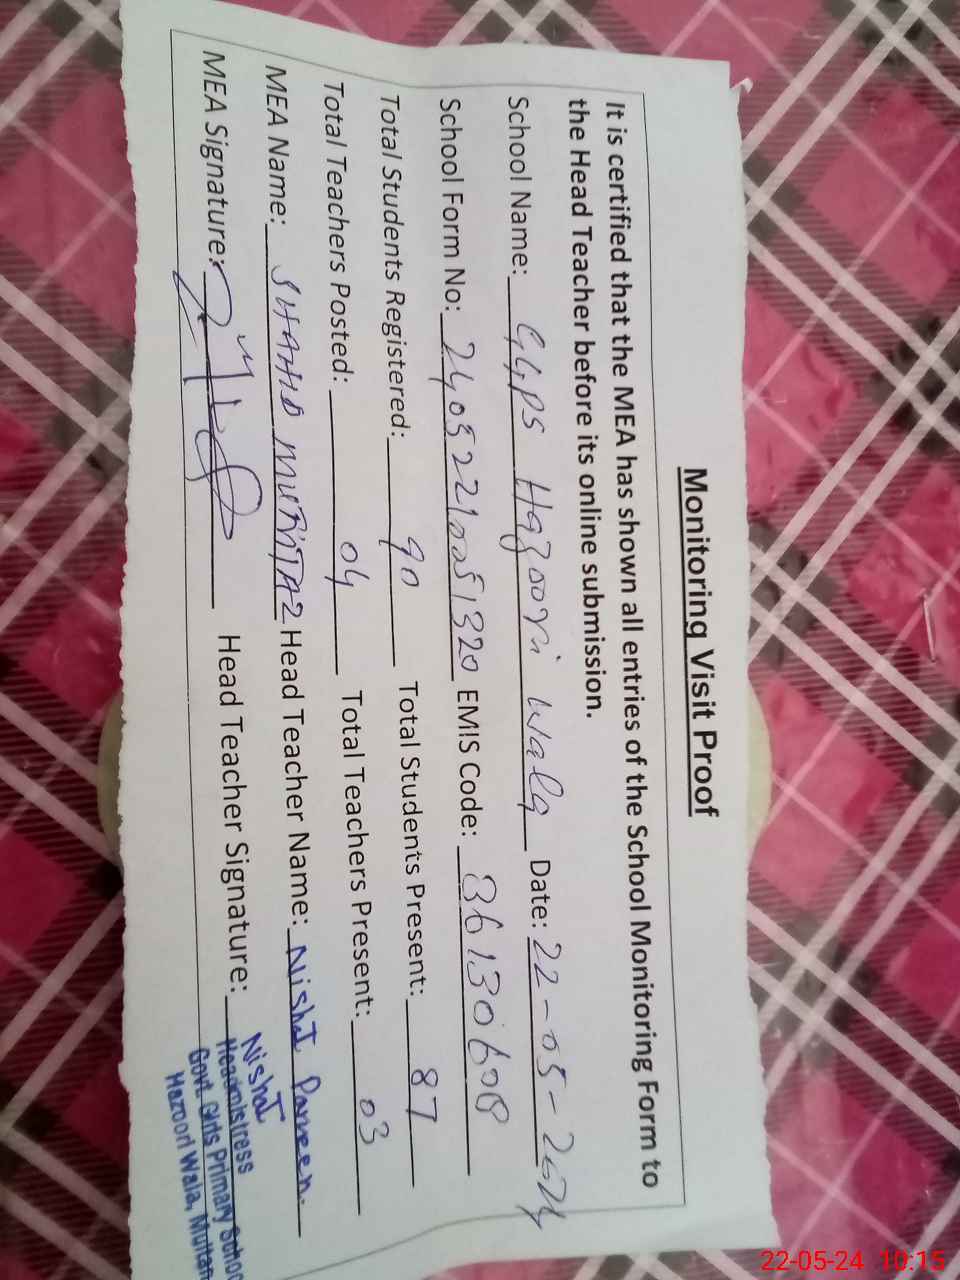 Monitoring Visit Proof
It is certified that the MEA has shown all entries of the School Monitoring Form to
the Head Teacher before its online submission.
School Name: GGPS Hazoori Wala Date: 22-05-2024
School Form No: EMIS Code: 36130608
Total Students Registered: 90 Total Students Present: 87
Total Teachers Posted: 04 Total Teachers Present: 03
MEA Name: SHAHID MUMTAZ Head Teacher Name: Nishat Parveen.
MEA Signature: Head Teacher Signature: Nishat
Headmistress
Govt. Girls Primary School
Hazoori Wala, Multan
22-05-24 10:15